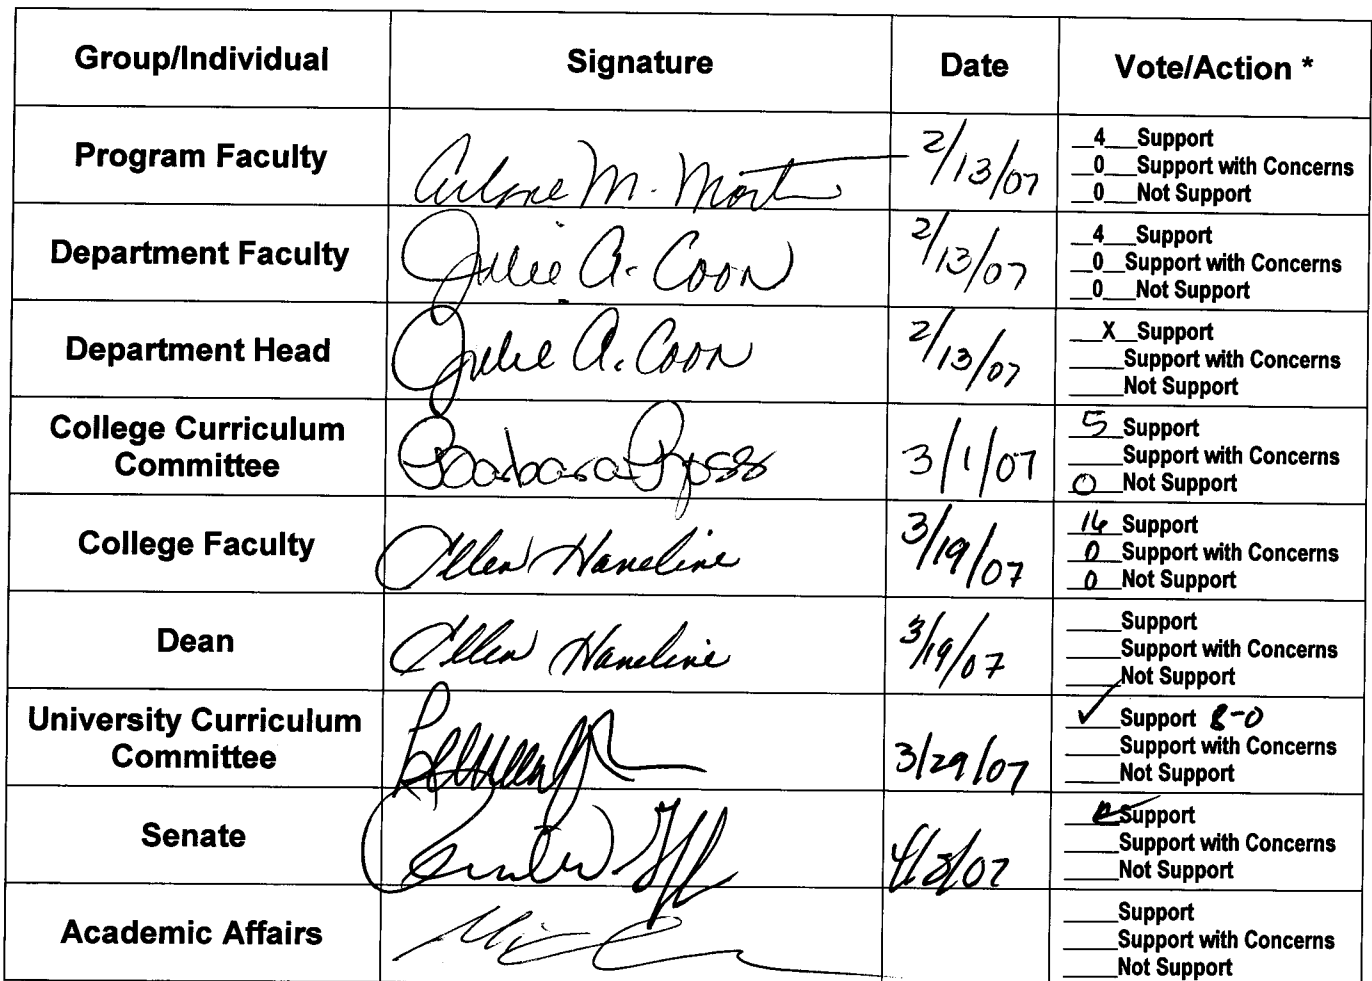 Group/Individual Signature Date Vote/Action *
Program Faculty Arlene M. Mort 2/13/07
__4___Support
__0___Support with Concerns
__0___Not Support
Department Faculty Julie A. Coon 2/13/07
__4___Support
__0__Support with Concerns
__0___Not Support
Department Head Julie A. Coon 2/13/07
___X__Support
_____Support with Concerns
_____Not Support
College Curriculum
Committee
Barbara Ross 3/1/07
5 Support
_____Support with Concerns
0 Not Support
College Faculty Ellen Haneline 3/19/07
16 Support
0 Support with Concerns
0 Not Support
Dean Ellen Haneline 3/19/07
_____Support
_____Support with Concerns
_____Not Support
University Curriculum
Committee
3/29/07
✓ Support 8-0
_____Support with Concerns
_____Not Support
Senate
Support
_____Support with Concerns
_____Not Support
Academic Affairs
_____Support
_____Support with Concerns
_____Not Support